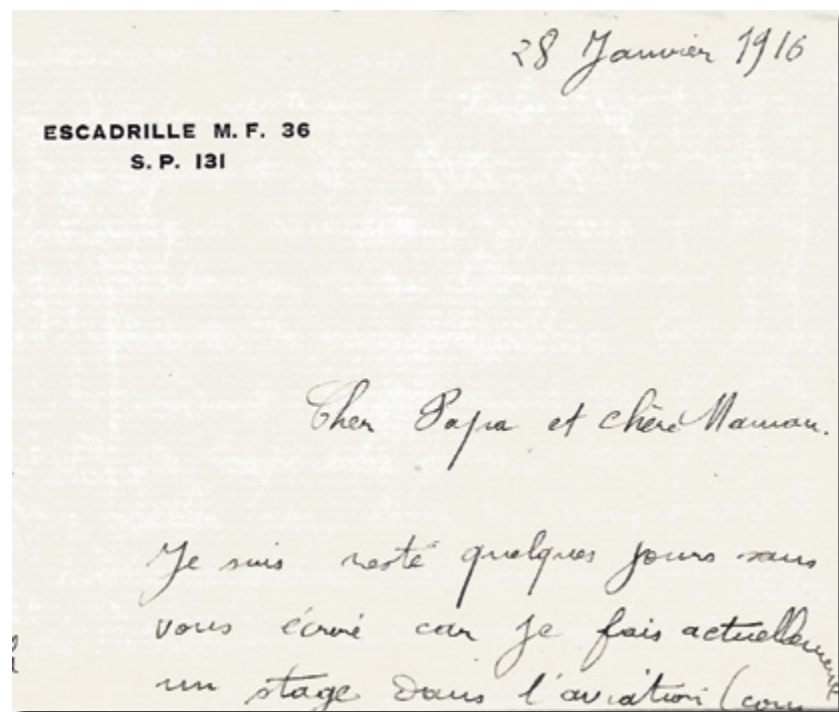 28 Janvier 1916
ESCADRILLE M. F. 36
S. P. 131
Cher Papa et chère Maman.
Je suis resté quelques jours sans
vous écrire car je fais actuellement
un stage dans l'aviation (